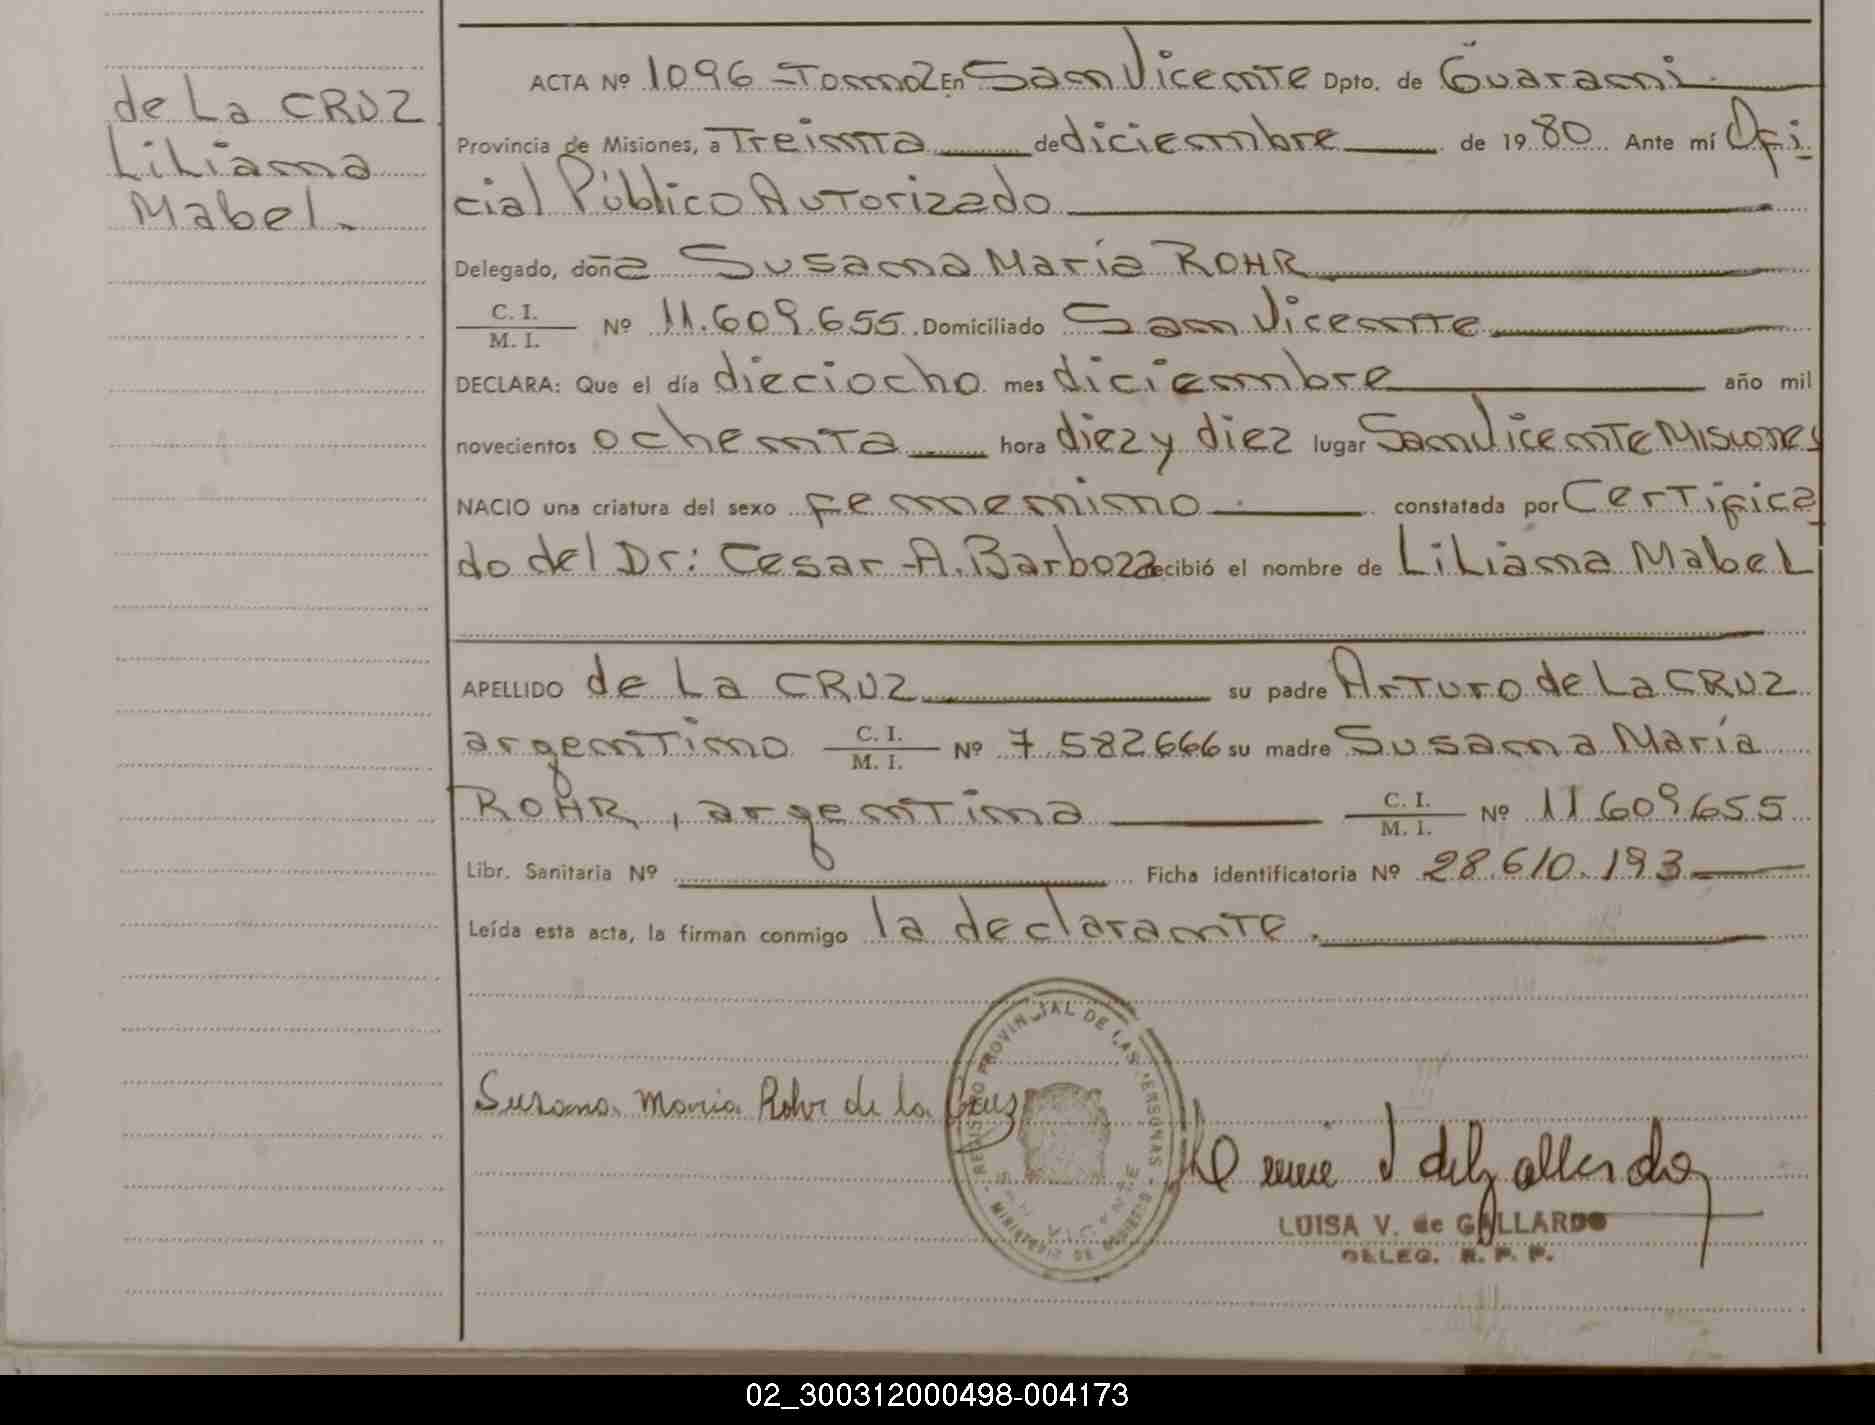 de La CRUZ
Liliana
Mabel.
ACTA Nº 1096 - Tomo 2 En San Vicente Dpto. de Guaraní
Provincia de Misiones, a Treinta de diciembre de 1980 Ante mí Ofi
cial Público Autorizado
Delegado, doña Susana María ROHR
C. I.
M. I.
Nº 11.609.655 Domiciliado San Vicente
DECLARA: Que el día dieciocho mes diciembre año mil
novecientos ochenta hora diez y diez lugar San Vicente Misiones
NACIO una criatura del sexo femenino constatada por Certifica
do del Dr: Cesar A. Barboza recibió el nombre de Liliana Mabel
APELLIDO de La CRUZ su padre Arturo de La CRUZ
argentino C. I. M. I. Nº 7.582666 su madre Susana María
ROHR, argentina C. I. M. I. Nº 11.609.655
Libr. Sanitaria Nº Ficha identificatoria Nº 28.610.193
Leída esta acta, la firman conmigo la declarante.
REGISTRO PROVINCIAL DE LAS PERSONAS
MINISTERIO DE GOBIERNO
SAN VICENTE
Susana Maria Rohr de la Cruz
LUISA V. de GALLARDO
DELEG. R. P. P.
02_300312000498-004173